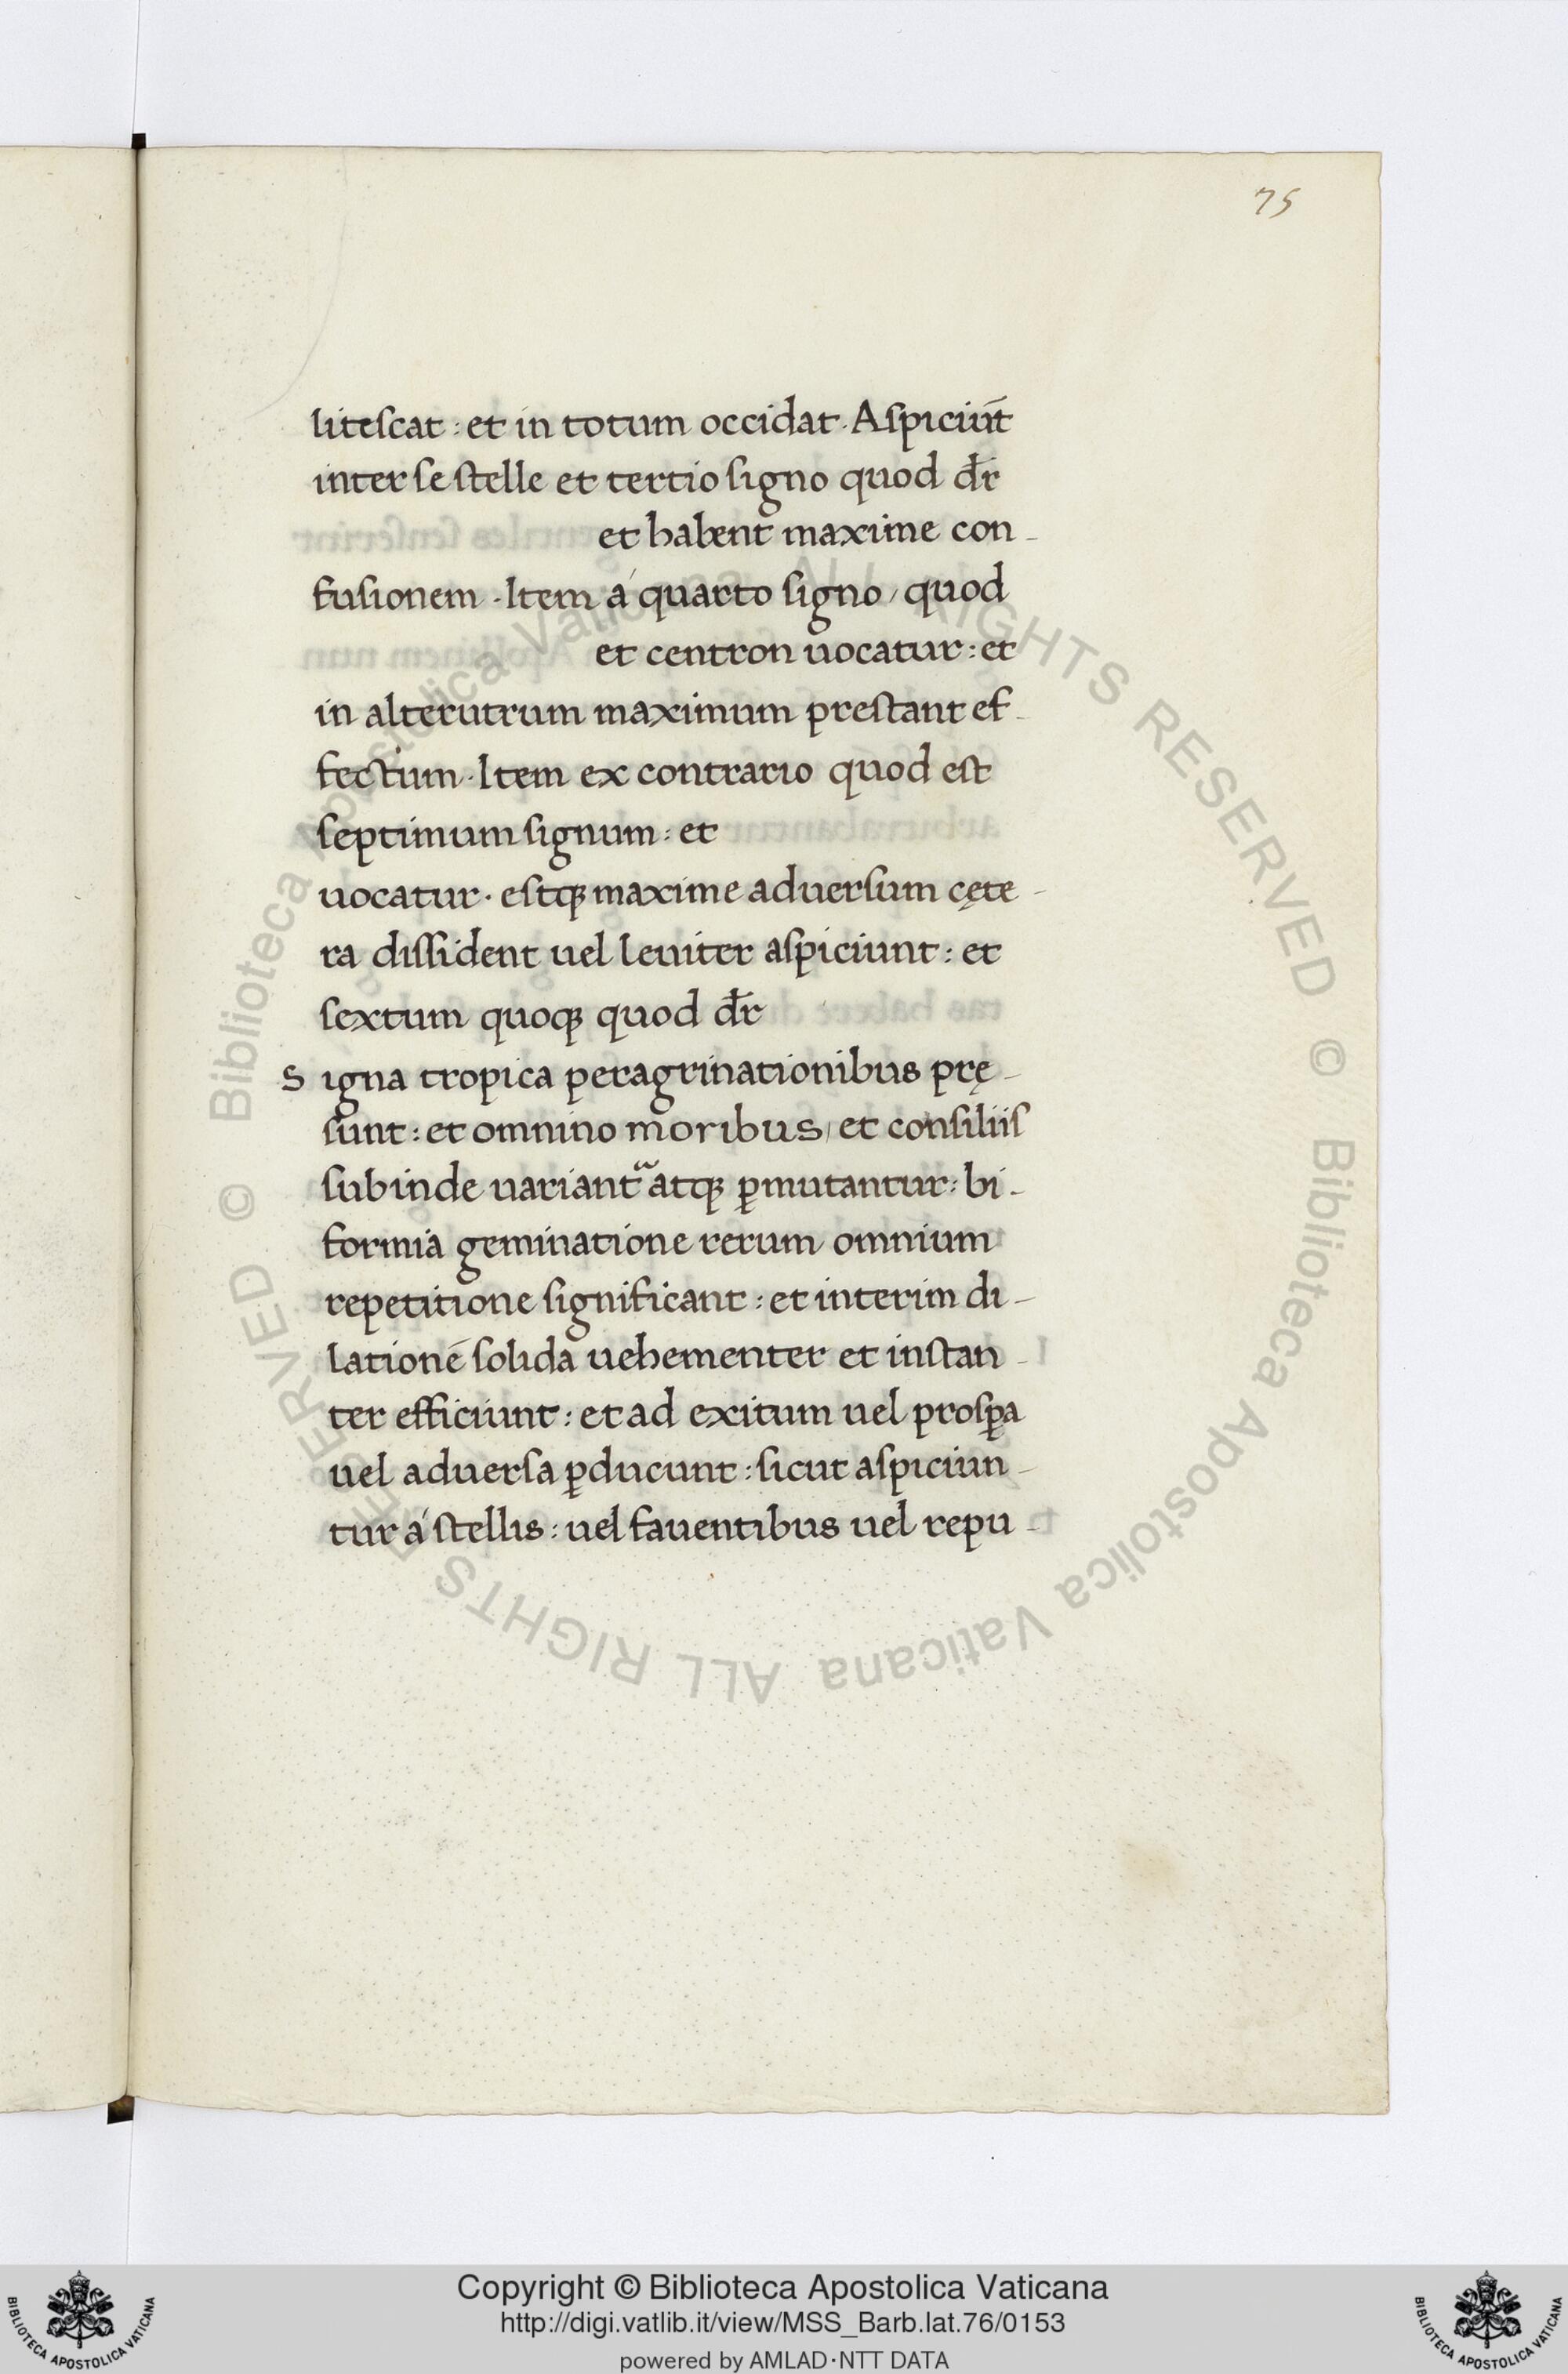 75
liteſcat : et in totum occidat. Aſpiciūt
inter ſe ſtelle et tertio ſigno quod dr̄
et habent maxime con-
fuſionem . Item á quarto ſigno, quod
et centron uocatur : et
in alterutrum maximum preſtant ef-
fectum . Item ex contrario quod est
ſeptimum ſignum : et
uocatur . eſtqꝫ maxime aduerſum cęte-
ra diſſident uel leuiter aſpiciunt : et
ſextum quoqꝫ quod dr̄
S igna tropica peragrinationibus prę-
ſunt : et omnino moribus, et conſiliiſ
ſubinde uariantᷓ atqꝫ ꝑmutantur : bi-
formia geminatione rerum omnium
repetitione ſignificant : et interim di-
lationē ſolida uehementer et inſtan-
ter efficiunt : et ad exitum uel proſꝑa
uel aduerſa ꝑducunt : ſicut aſpiciun-
tur á ſtellis : uel fauentibus uel repu-
Copyright © Biblioteca Apostolica Vaticana
http://digi.vatlib.it/view/MSS_Barb.lat.76/0153
powered by AMLAD·NTT DATA
BIBLIOTECA APOSTOLICA VATICANA
BIBLIOTECA APOSTOLICA VATICANA
© Biblioteca Apostolica Vaticana ALL RIGHTS RESERVED
© Biblioteca Apostolica Vaticana ALL RIGHTS RESERVED